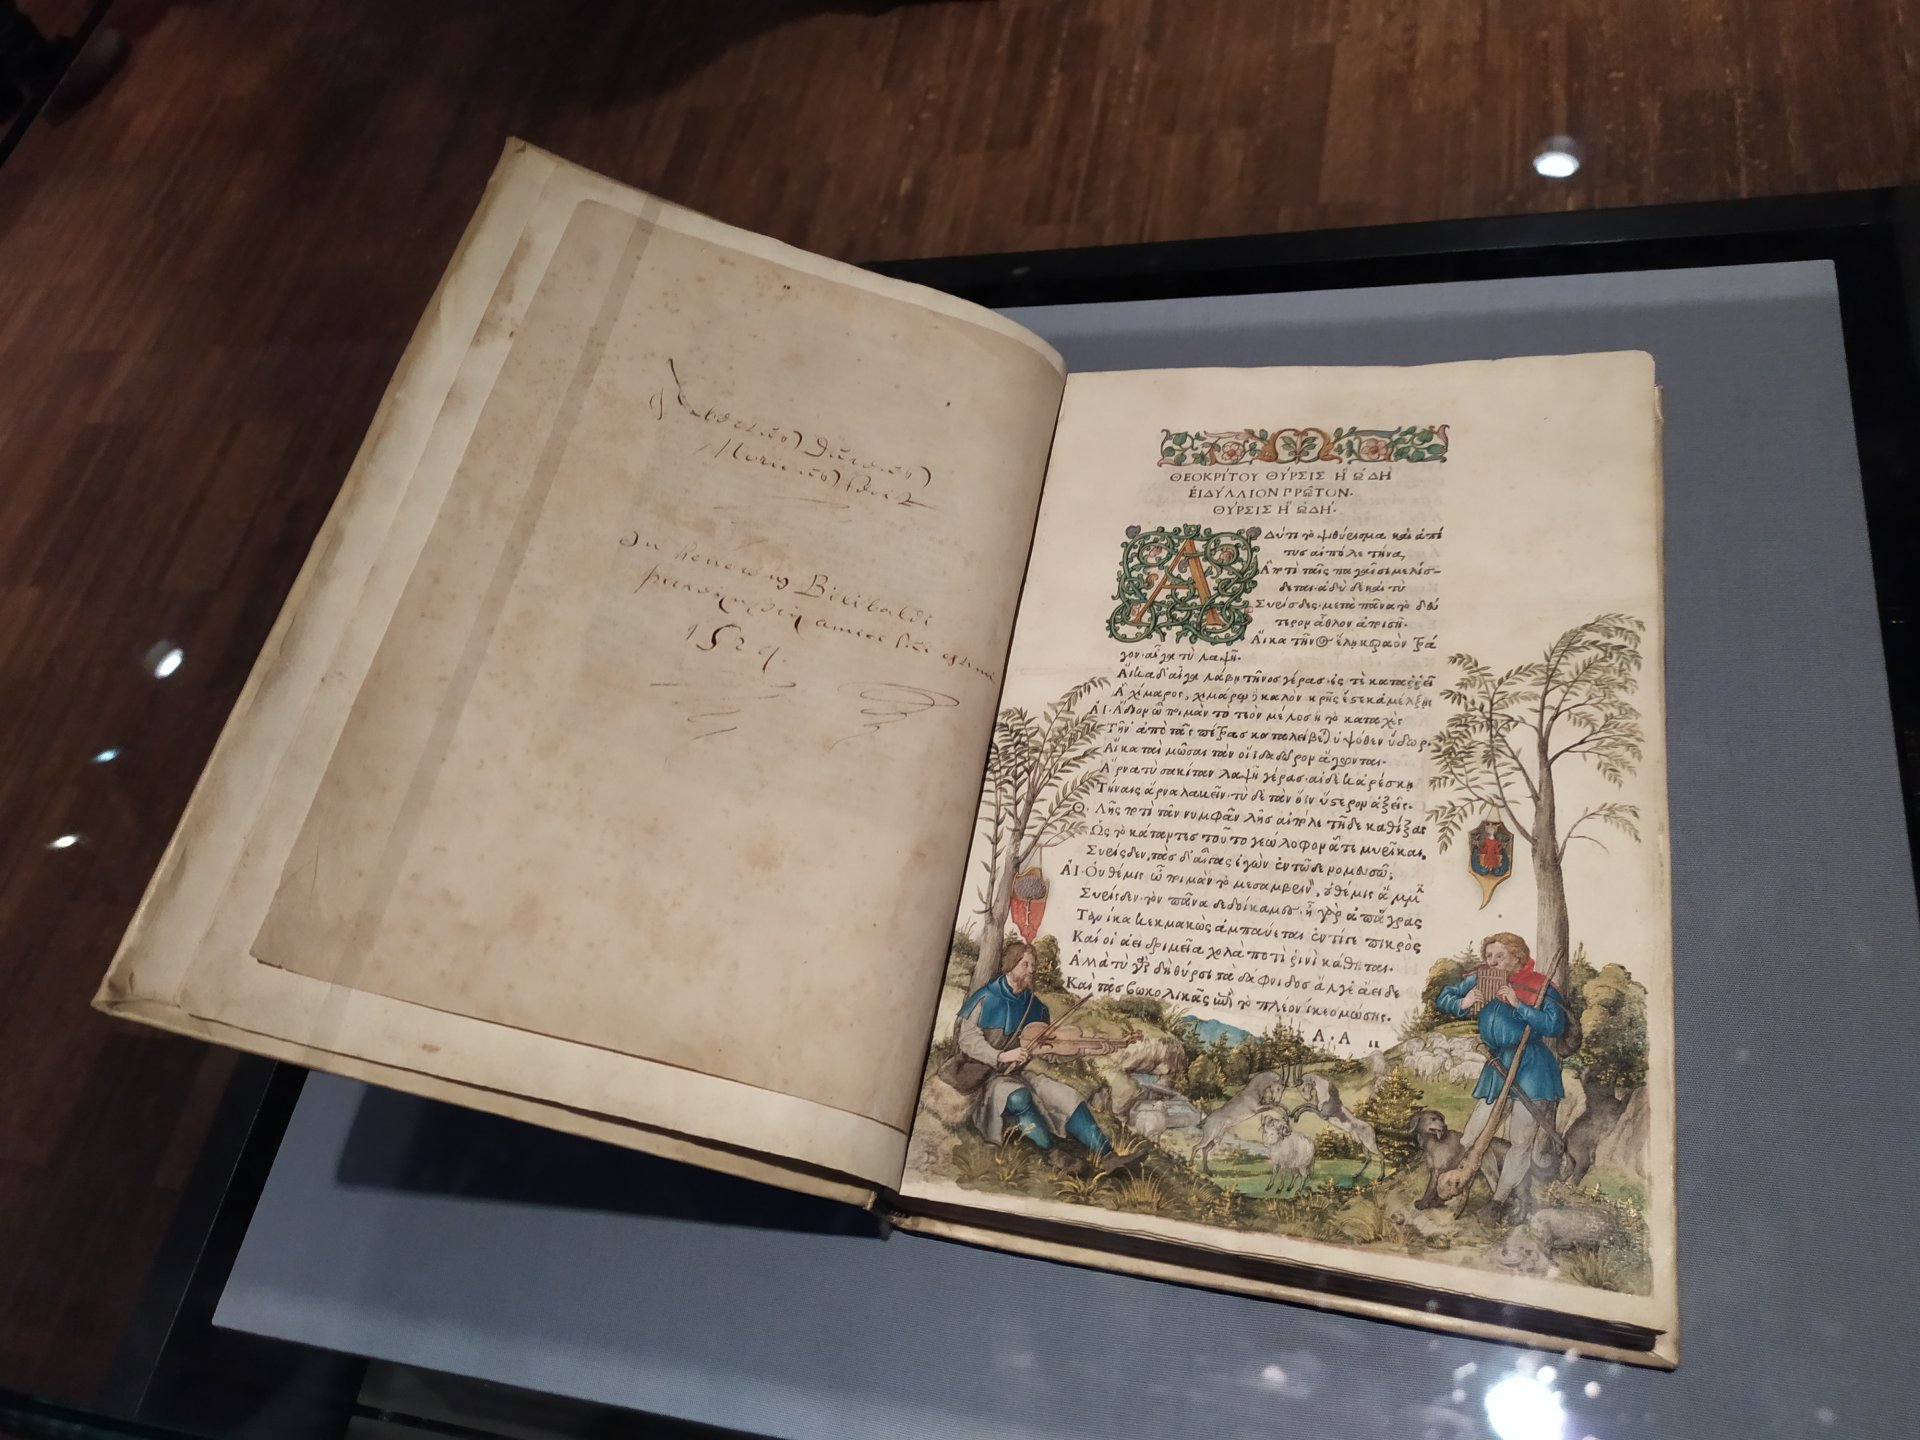 Albertus Durerus
Noricus fecit
In honorem Bilibaldi
amici sui optimi
1524.
ΘΕΟΚΡΊΤΟΥ ΘΎΡΣΙΣ Ἢ ᾨΔῊ
ἘΙΔΎΛΛΙΟΝ ΠΡΩ͂ΤΟΝ.
ΘΎΡΣΙΣ Ἢ ᾨΔΉ.
ΑΔύ τι τὸ ψιθύρισμα καὶ ἁ πί
τυς αἰπόλε τήνα,
Ἃ ποτὶ ταῖς παγαῖσι μελίσ-
δεται. ἁδὺ δὲ καὶ τὺ
Συρίσδες. μετὰ πᾶνα τὸ δεύ
τερον ἆθλον ἀποισῇ.
Αἴκα τῆνος ἕλῃ κεραὸν τρά
γον. αἶγα τὺ λαψῇ.
Αἴκα δ' αἶγα λάβῃ τῆνος γέρας. ἐς τὲ καταῤῥεῖ
Ἁ χίμαρος, χιμάρῳ δὲ καλὸν κρῆς ἔστε κ' ἀμέλξῃς
ΑΙ. Ἅδιον ὦ ποιμὰν τὸ τεὸν μέλος ἢ τὸ καταχὲς
Τῆν' ἀπὸ τᾶς πέτρας καταλείβεται ὑψόθεν ὕδωρ.
Αἴκα ταὶ μῶσαι τὰν οἴιδα δῶρον ἄγωνται.
Ἄρνα τὺ σακίταν λαψῇ γέρας. αἰ δέ κ' ἀρέσκῃ
Τήναις ἄρνα λαβεῖν. τὺ δὲ τὰν ὄιν ὕστερον ἀξεῖς.
Θ. Λῇς ποτὶ τᾶν νυμφᾶν λῇς αἰπόλε τῇδε καθίξας
Ὡς τὸ κάταντες τοῦτο γεώλοφον ἅτε μυρῖκαι,
Συρίσδεν, τὰς δ' αἶγας ἐγὼν ἐν τῷδε νομευσῶ;
ΑΙ. Οὐ θέμις ὦ ποιμὰν τὸ μεσαμβρινὸν, οὐ θέμις ἄμμιν
Συρίσδεν. τὸν πᾶνα δεδοίκαμες. ἦ γὰρ ἀπ' ἄγρας
Τανίκα κεκμακὼς ἀμπαύεται. ἐντί γε πικρὸς
Καί οἱ ἀεὶ δριμεῖα χολὰ ποτὶ ῥινὶ κάθηται.
Ἀλλὰ τὺ γὰρ δὴ θύρσι τὰ δάφνιδος ἄλγε' ἄειδε
Καὶ τᾶς βωκολικᾶς ἐπὶ τὸ πλέον ἵκεο μώσης.
Α.Α ιι